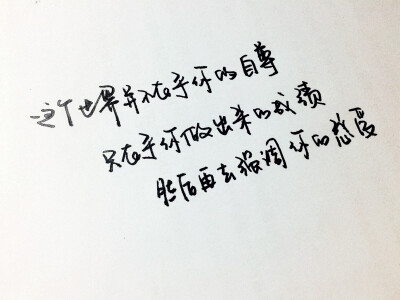 这个世界并不在乎你的自尊
只在乎你做出来的成绩
然后再去强调你的感受